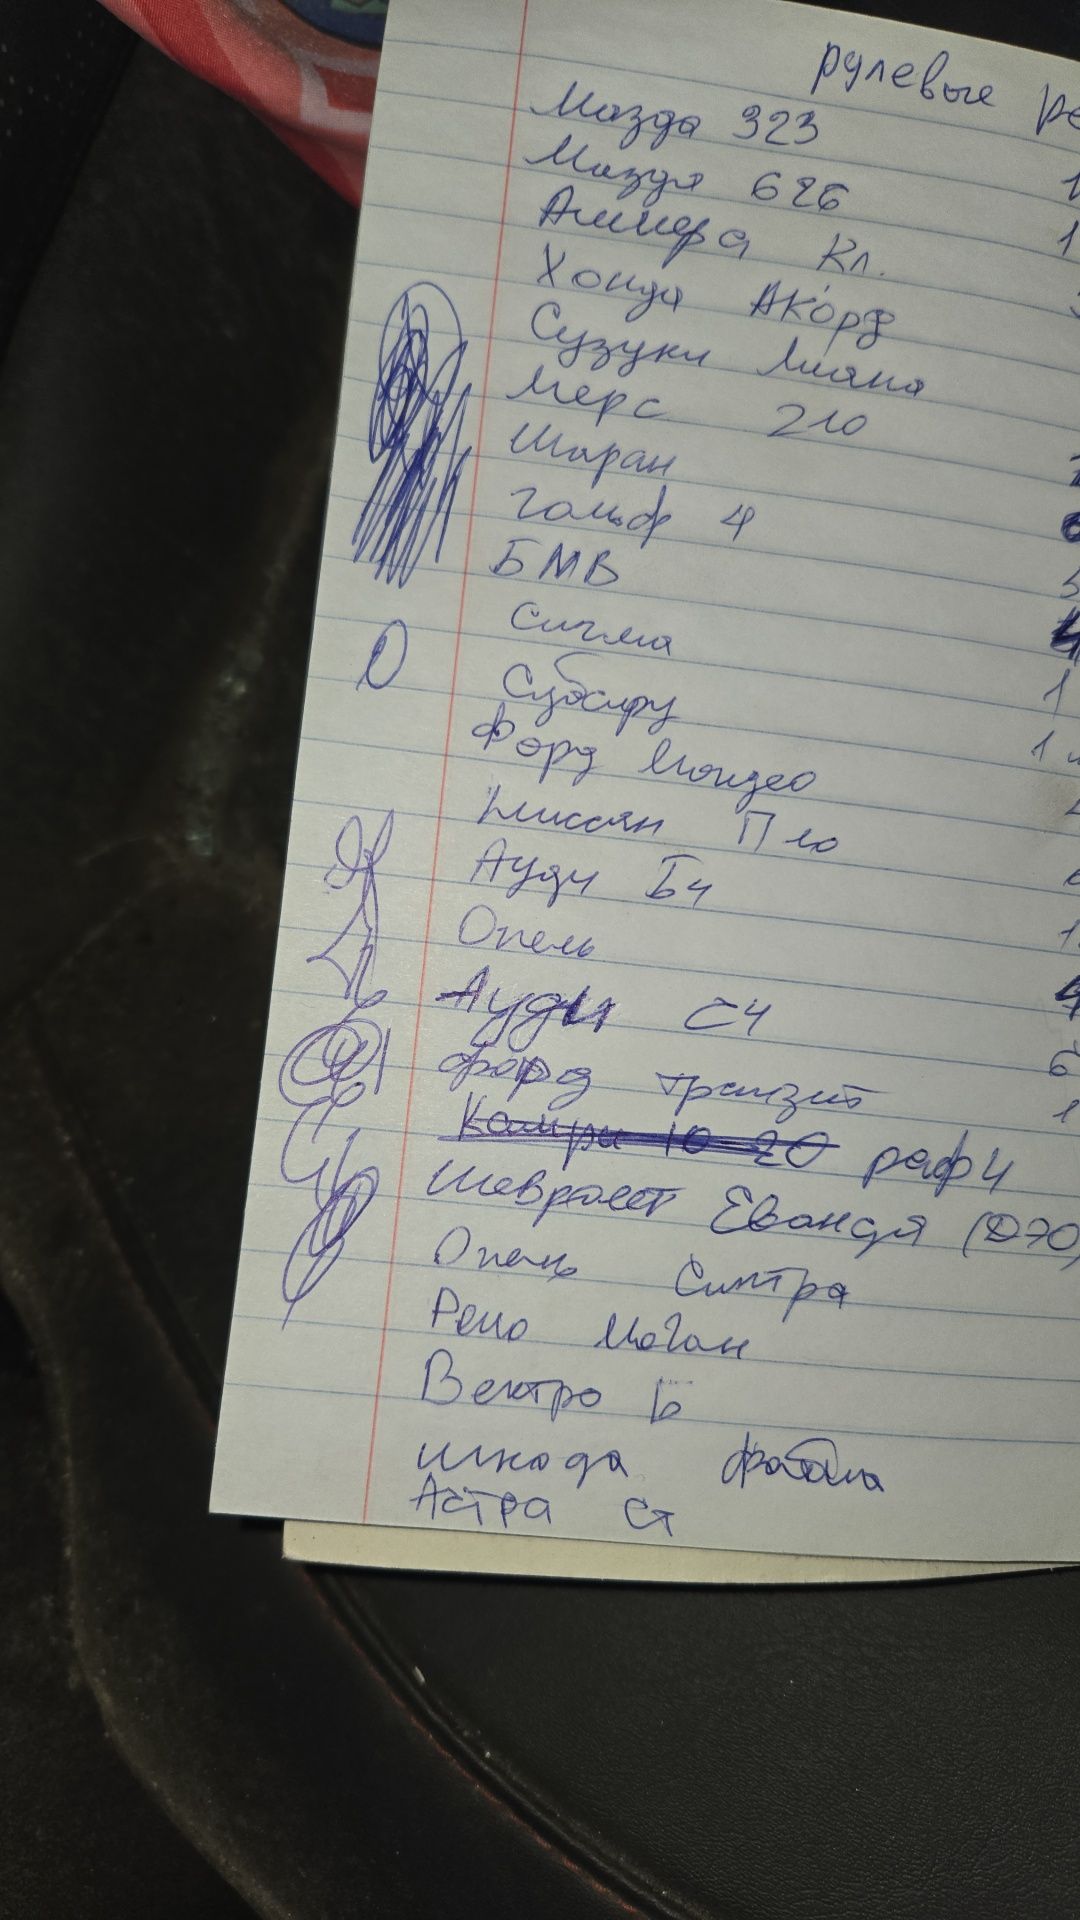 рулевые ре
Мазда 323
Мазда 626 1
Алмера Кл. 1
Хонда Акорд
Сузуки Лиана
Мерс 210
Шаран
Гольф 4
БМВ 5
Сигма
Субару 1
Форд Мондео 1
Ниссан П10
Ауди Б4
Опель 1
Ауди С4
Форд транзит 6
Камри 10 20 раф4 1
Шевролет Еванда (ДЭО)
Опель Синтра
Рено Меган
Вектра Б
шкода фабиа
Астра